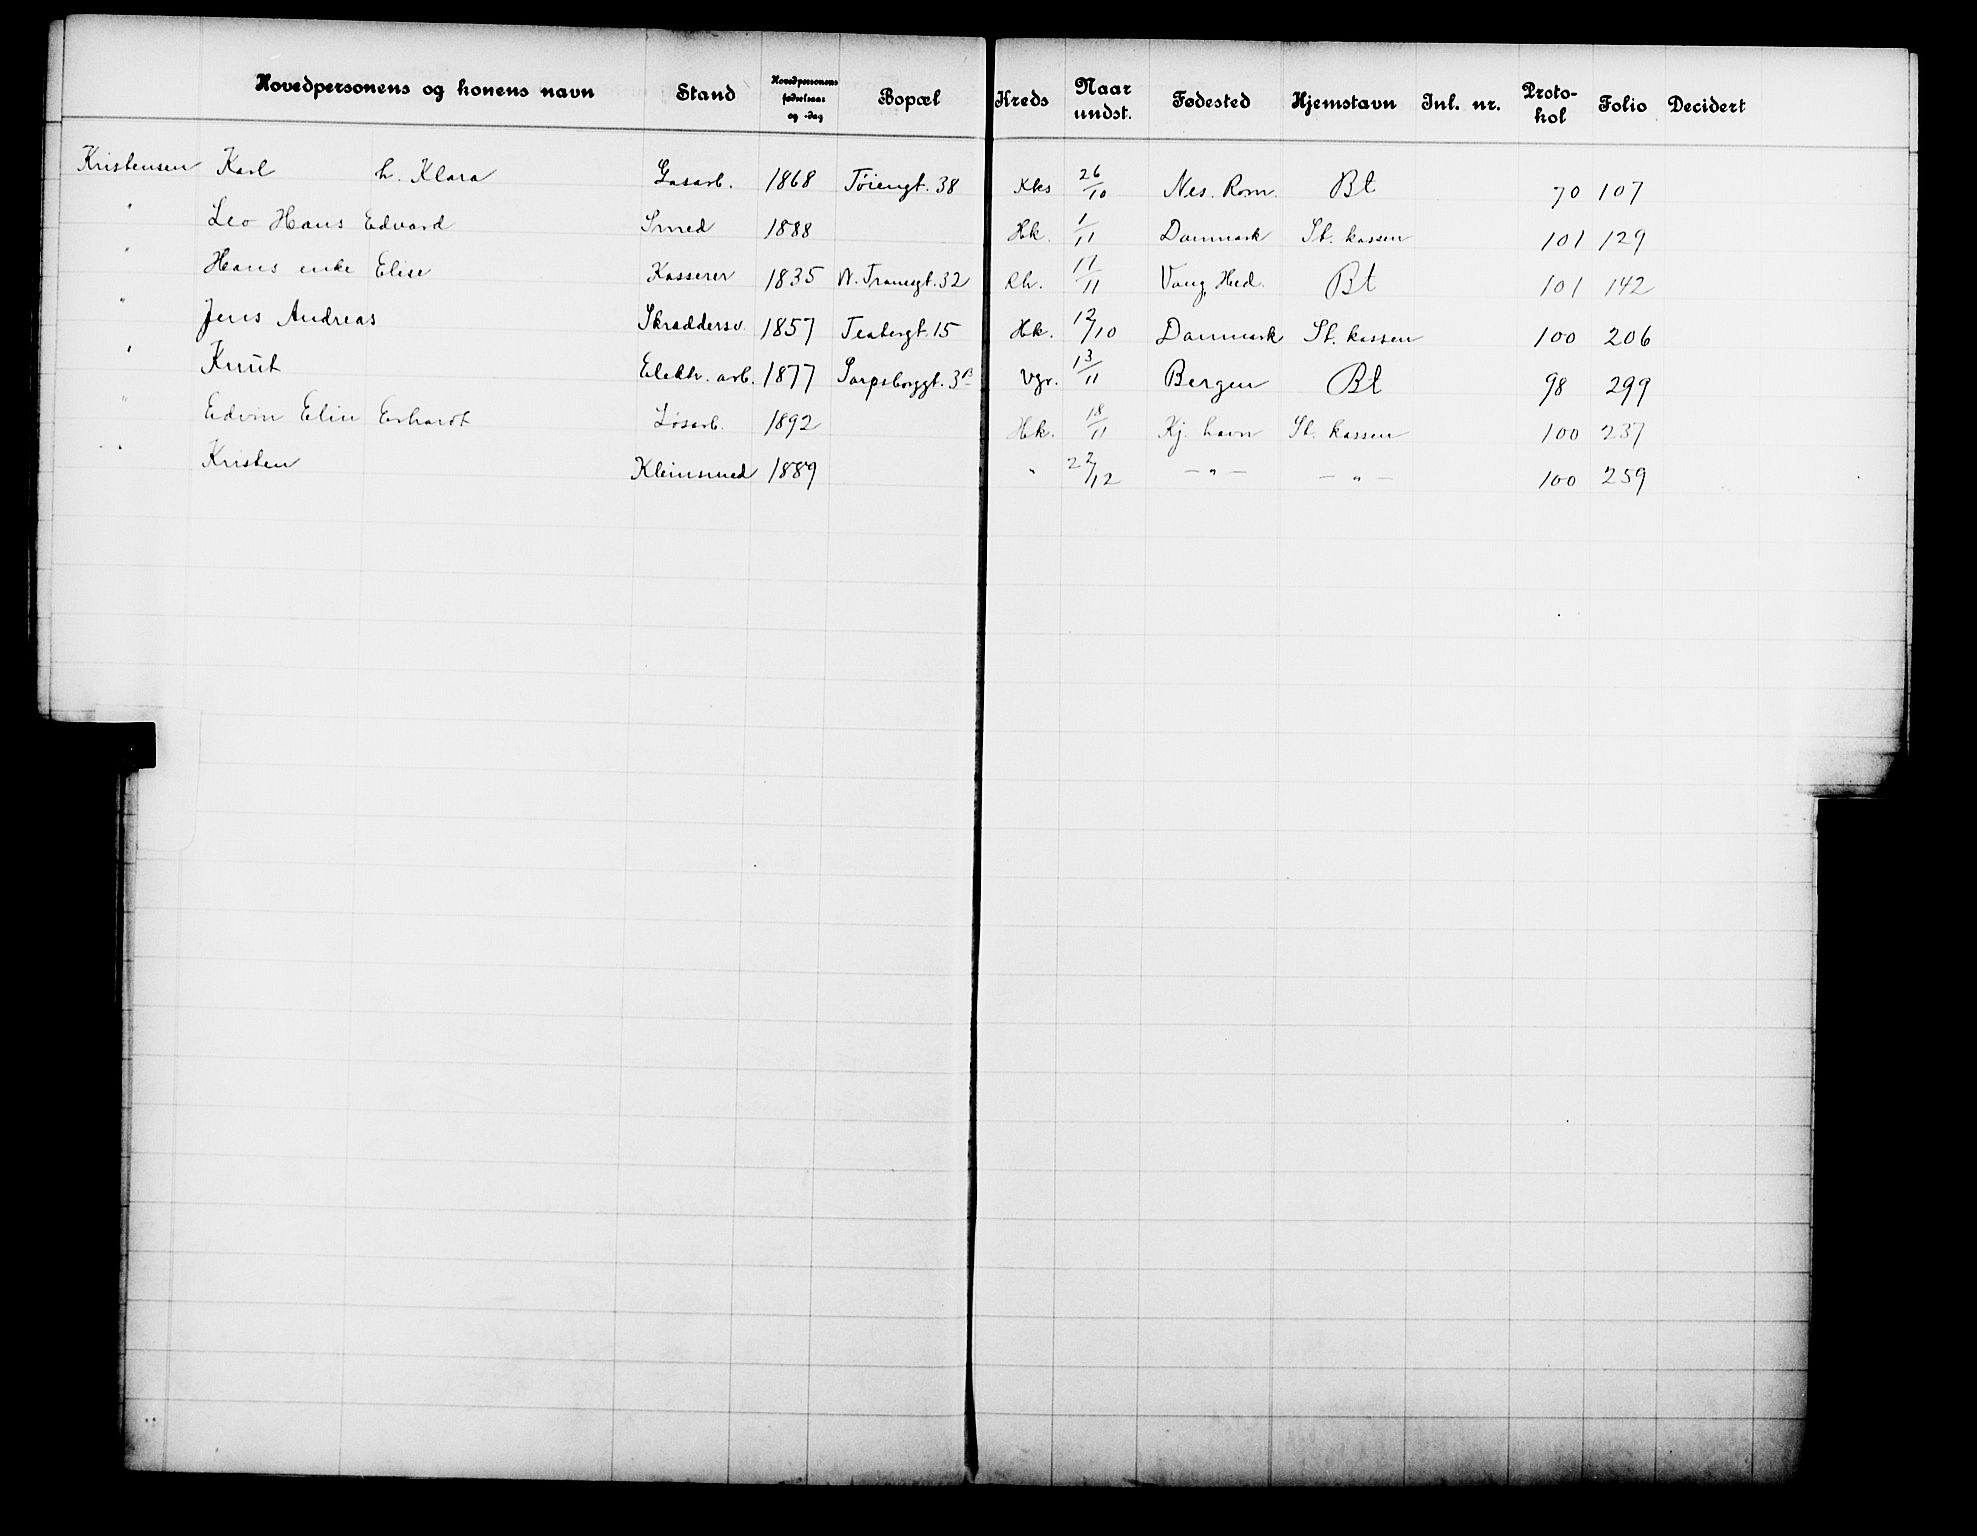 Hovedpersonens og konens navn Stand Hovedpersonens fødselsaar og -dag Bopæl Kreds Naar undst. Fødested Hjemstavn Inl. nr. Protokol Folio Decidert
Kristensen Karl h. Klara Gasarb. 1868 Tøiengt. 38 Kks 26/10 Nes. Rom. Bt 70 107
" Leo Hans Edvard Smed 1888 Hk. 1/11 Danmark St. kassen 101 129
" Hans enke Elise Kasserer 1835 N. Tranesgt. 32 Rh. 17/11 Vang, Hed. Bt 101 142
" Jens Andreas Skræddersv. 1857 Teatergt. 15 Hk. 12/10 Danmark St. kassen 100 206
" Knut Elektr. arb. 1877 Sarpsborggt. 3B Vgr. 13/11 Bergen Bt 98 299
" Edvin Elin Erhardt Løsarb. 1892 Hk. 18/11 Kj. havn St. kassen 100 237
" Kristen Kleinsmed 1889 " 22/12 - " - - " - 100 259